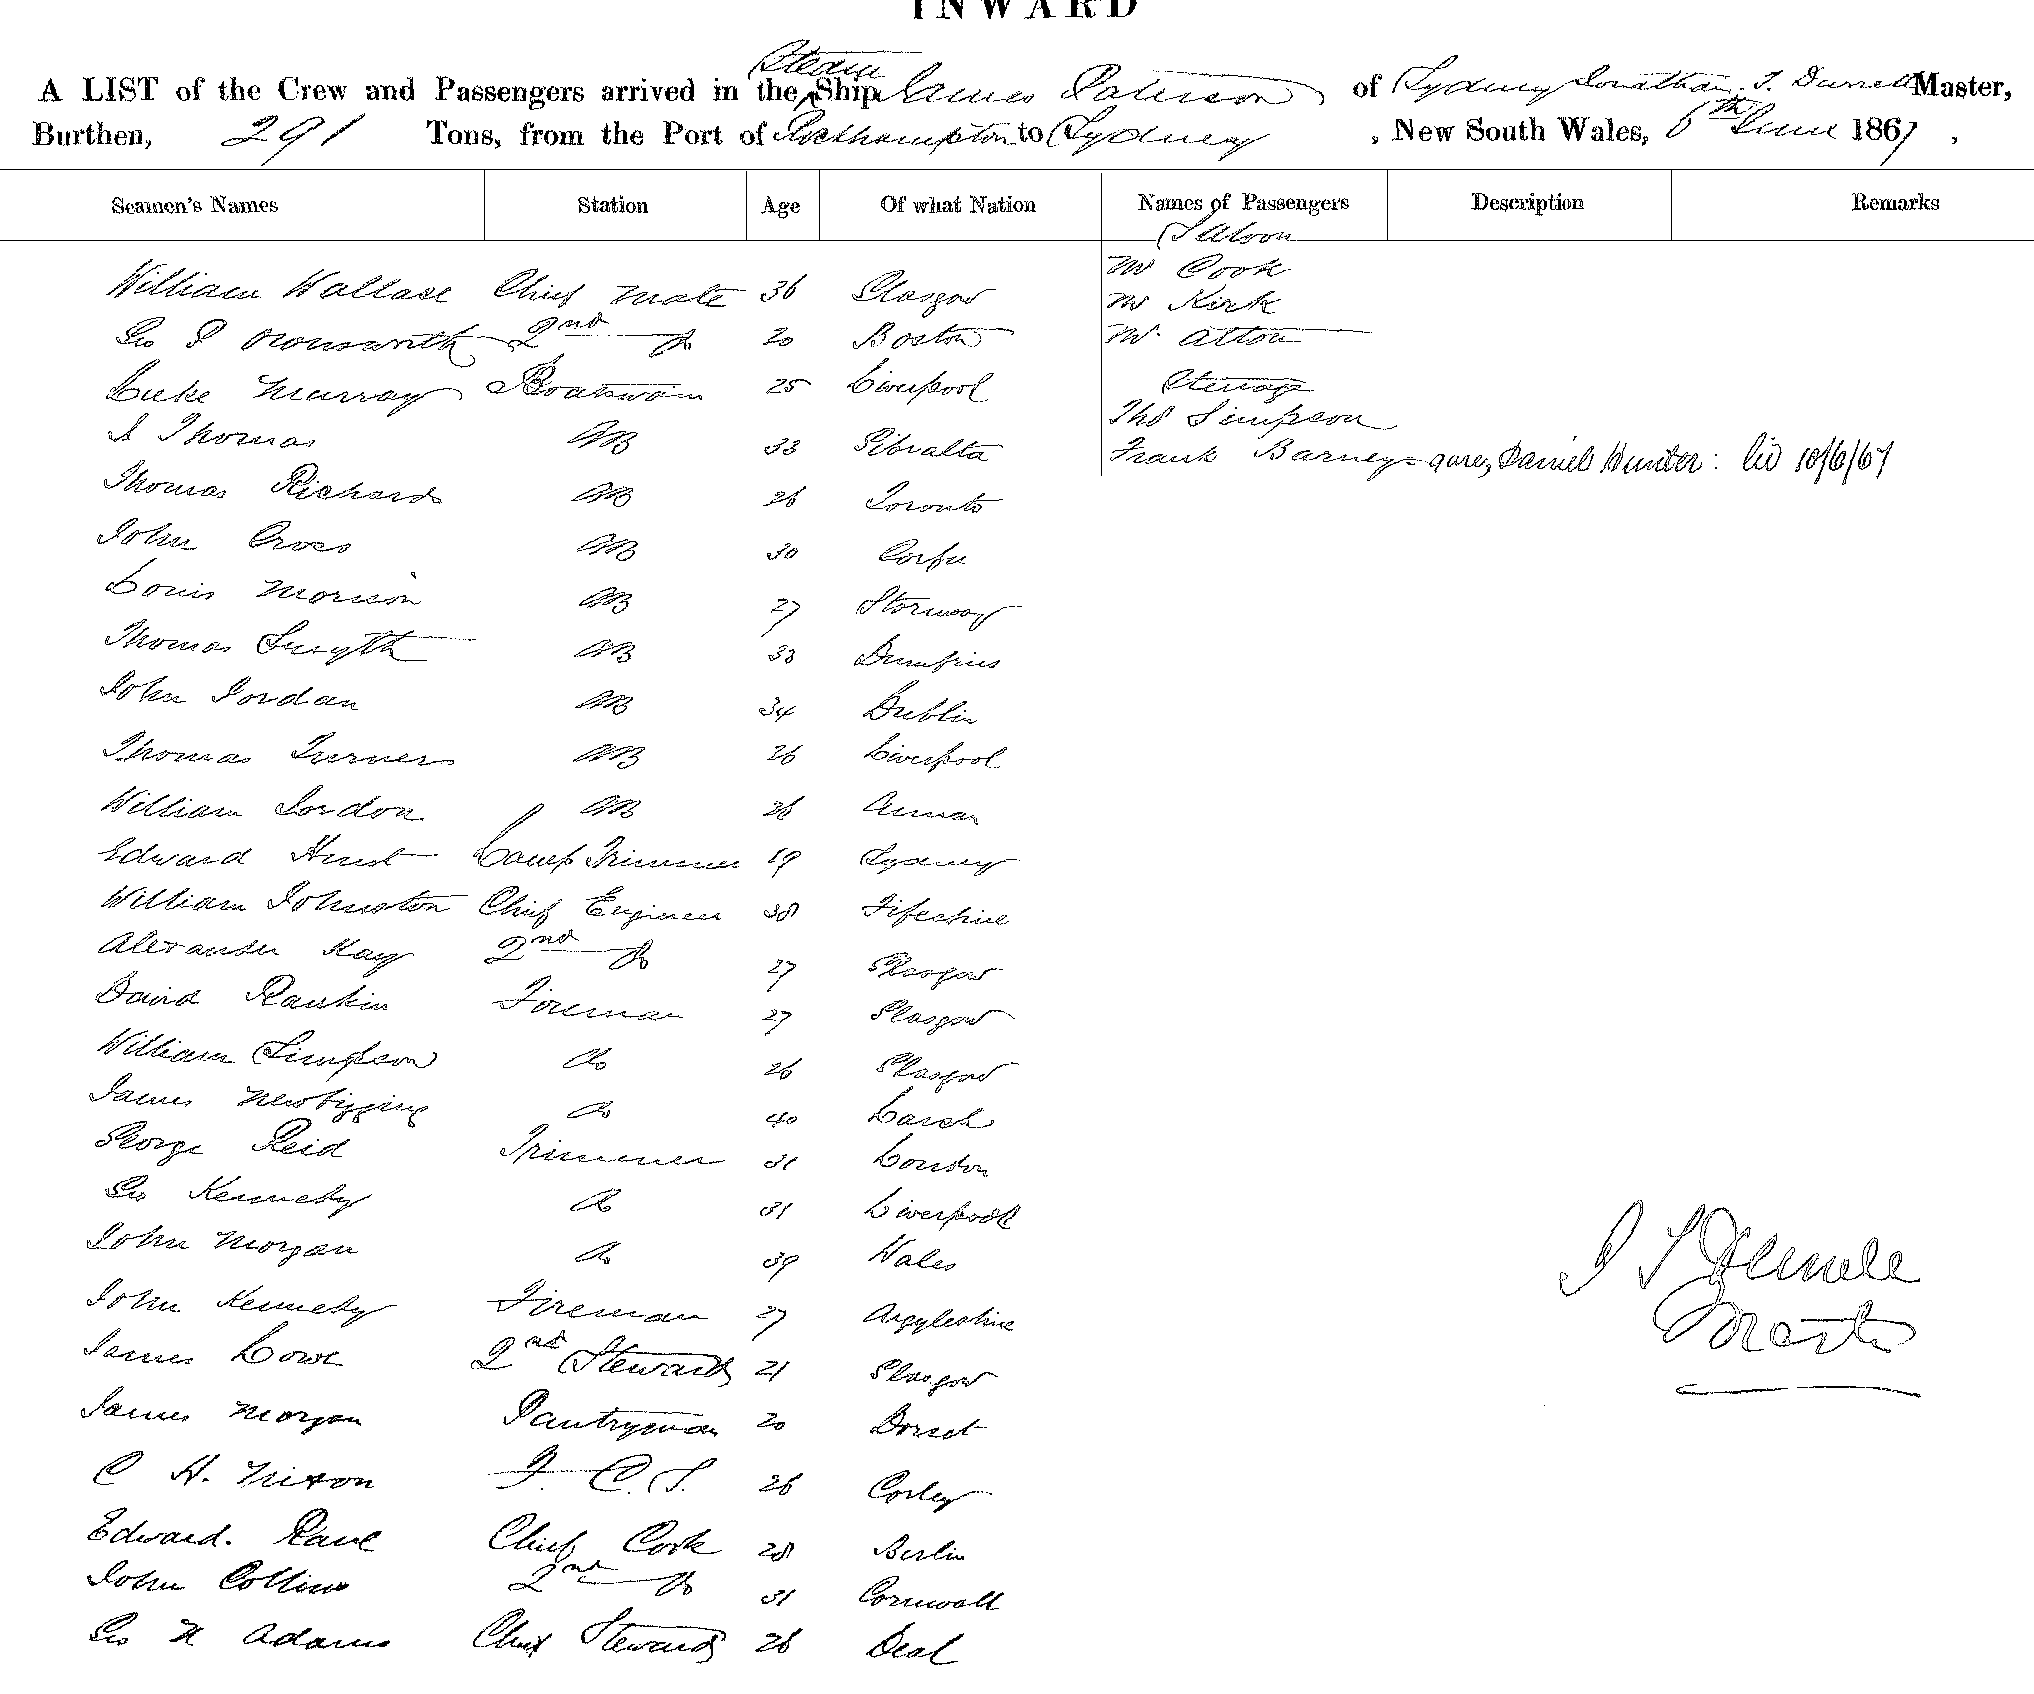 INWARD
A LIST of the Crew and Passengers arrived in the Steam Ship James Paterson of Sydney Jonathan. S. Durrell Master,
Burthen, 291 Tons, from the Port of Rockhampton to Sydney , New South Wales, 6th June 1867 ,
Seamen's Names Station Age Of what Nation Names of Passengers Description Remarks
Saloon
Mr Cook
William Wallace Chief Mate 36 Glasgow
Mr Kirk
Geo S 2nd Do 20 Boston
Mr Alton
Luke Murray Boatswain 25 Liverpool
Steerage
Thos Simpson
J Thomas AB 33 Gibralta
Frank Barney - quer, Daniel Hunter : lid 10/6/67
Thomas Richards AB 26 Toronto
John Cross AB 30 Corfu
Louis Morison AB 27 Stornway
Thomas Smyth AB 33 Dumfries
John Jordan AB 34 Dublin
Thomas Turner AB 26 Liverpool
William Jordon AB 26 Annan
Edward Hurst Lamp Trimmer 19 Sydney
William Johnston Chief Engineer 38 Fifeshire
Alexander Kay 2nd Do 27 Glasgow
David Rankin Fireman 27 Glasgow
William Simpson Do 26 Glasgow
James Newbigging Do 40
George Reid Trimmer 31 London
Geo Kennedy Do 31 Liverpool
John Morgan Do 39 Wales
John Kennedy Fireman 27 Argyleshire
James Lowe 2nd Steward 21 Glasgow
James Morgan Pantryman 20 Dorset
C H. Nixon F. C. S. 26 Corley
Edward. Rave Chief Cook 28 Berlin
John Collins 2nd Do 31 Cornwall
Geo H Adams Chief Steward 26 Deal
J S Durrell
Master